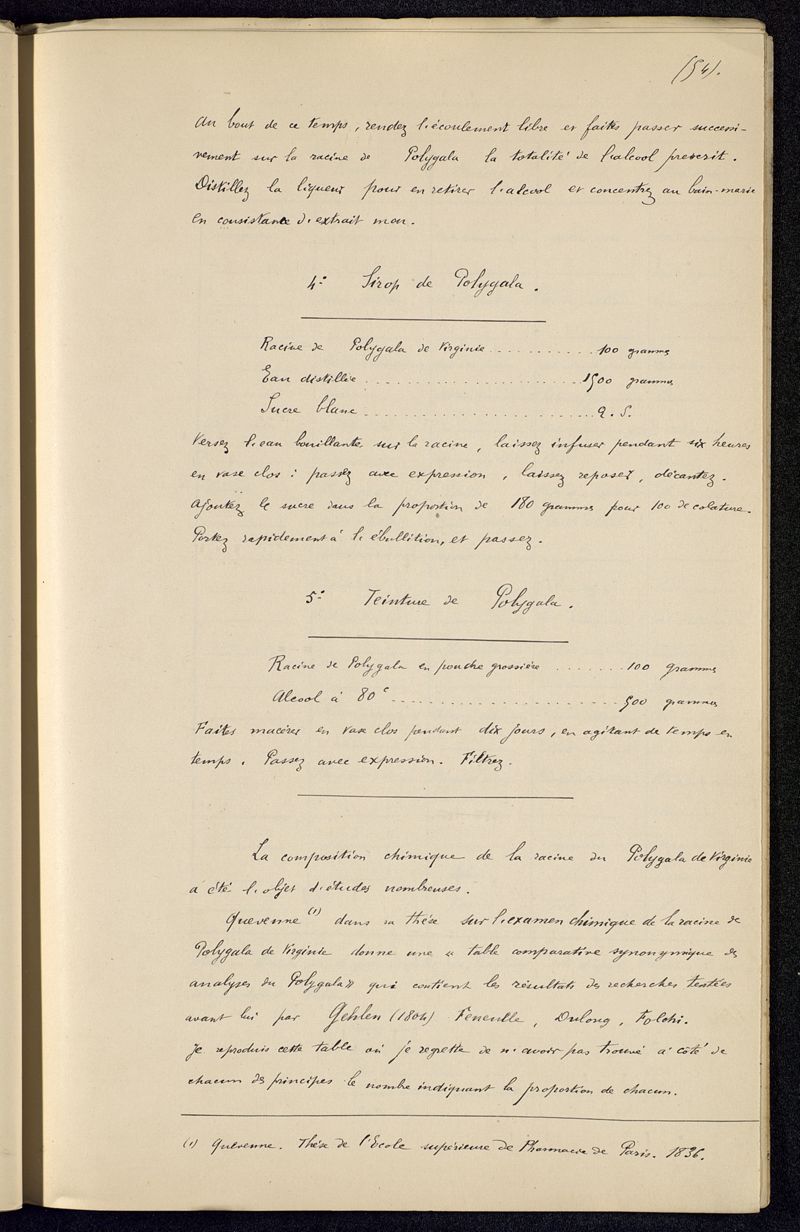 (54).
Au bout de ce temps, rendez l'écoulement libre et faites passer successi-
vement sur la racine de Polygala la totalité de l'alcool prescrit.
Distillez la liqueur pour en retirer l'alcool et concentrez au bain-marie
en consistance d'extrait mou.
4° Sirop de Polygala.
Racine de Polygala de Virginie ........... 100 grammes
Eau distillée ........................ 1500 grammes
Sucre blanc ........................ Q. S.
Versez l'eau bouillante sur la racine, laissez infuser pendant six heures
en vase clos : passez avec expression, laissez reposer, décantez.
Ajoutez le sucre dans la proportion de 180 grammes pour 100 de colature.
Portez rapidement à l'ébullition, et passez.
5° Teinture de Polygala.
Racine de Polygala en poudre grossière ....... 100 grammes
Alcool à 80° ...................... 500 grammes
Faites macérer en vase clos pendant dix jours, en agitant de temps en
temps. Passez avec expression. Filtrez.
La composition chimique de la racine du Polygala de Virginie
a été l'objet d'études nombreuses.
Quevenne (1) dans sa thèse sur l'examen chimique de la racine de
Polygala de Virginie donne une « table comparative synonymique des
analyses du Polygala » qui contient les résultats des recherches tentées
avant lui par Gehlen (1804) Feneulle, Dulong, Folchi.
Je reproduis cette table où je regrette de n'avoir pas trouvé à côté de
chacun des principes le nombre indiquant la proportion de chacun.
(1) Quevenne. Thèse de l'Ecole supérieure de Pharmacie de Paris. 1836.